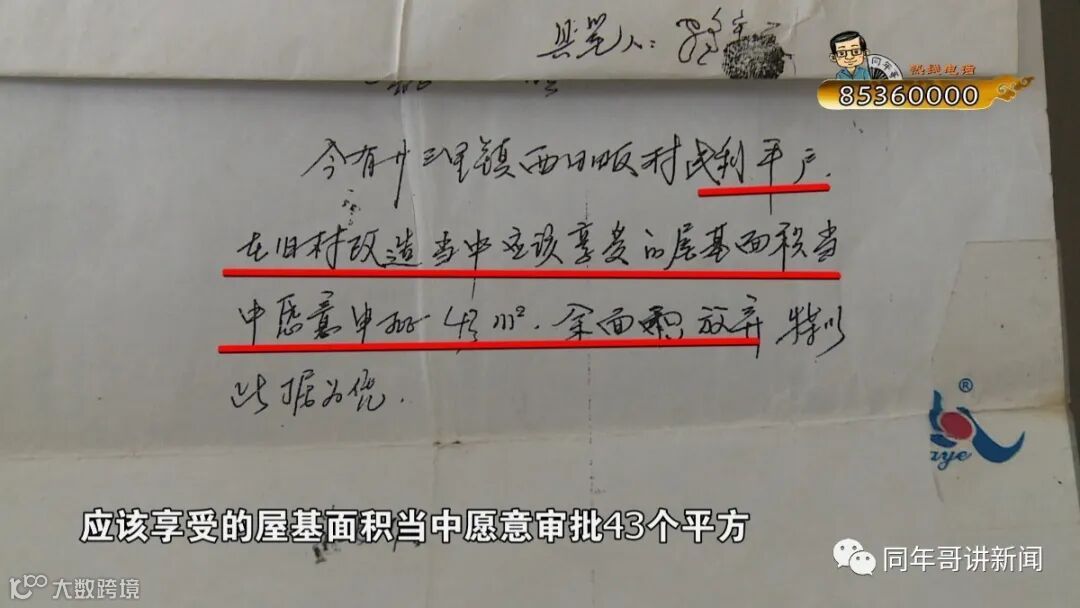 具笔人:
同年哥
热线电话
85360000
今有廿三里镇西田畈村民利平户.
在旧村改造当中应该享受的屋基面积当
中愿意审批43m². 余面积放弃 特以
此据为凭.
®
aye
应该享受的屋基面积当中愿意审批43个平方
同年哥讲新闻
大数跨境